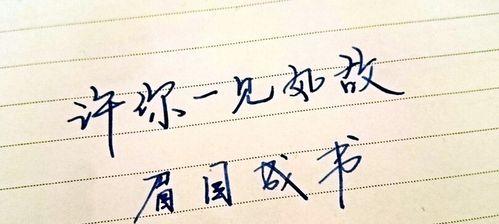 许你一见如故
眉目成书